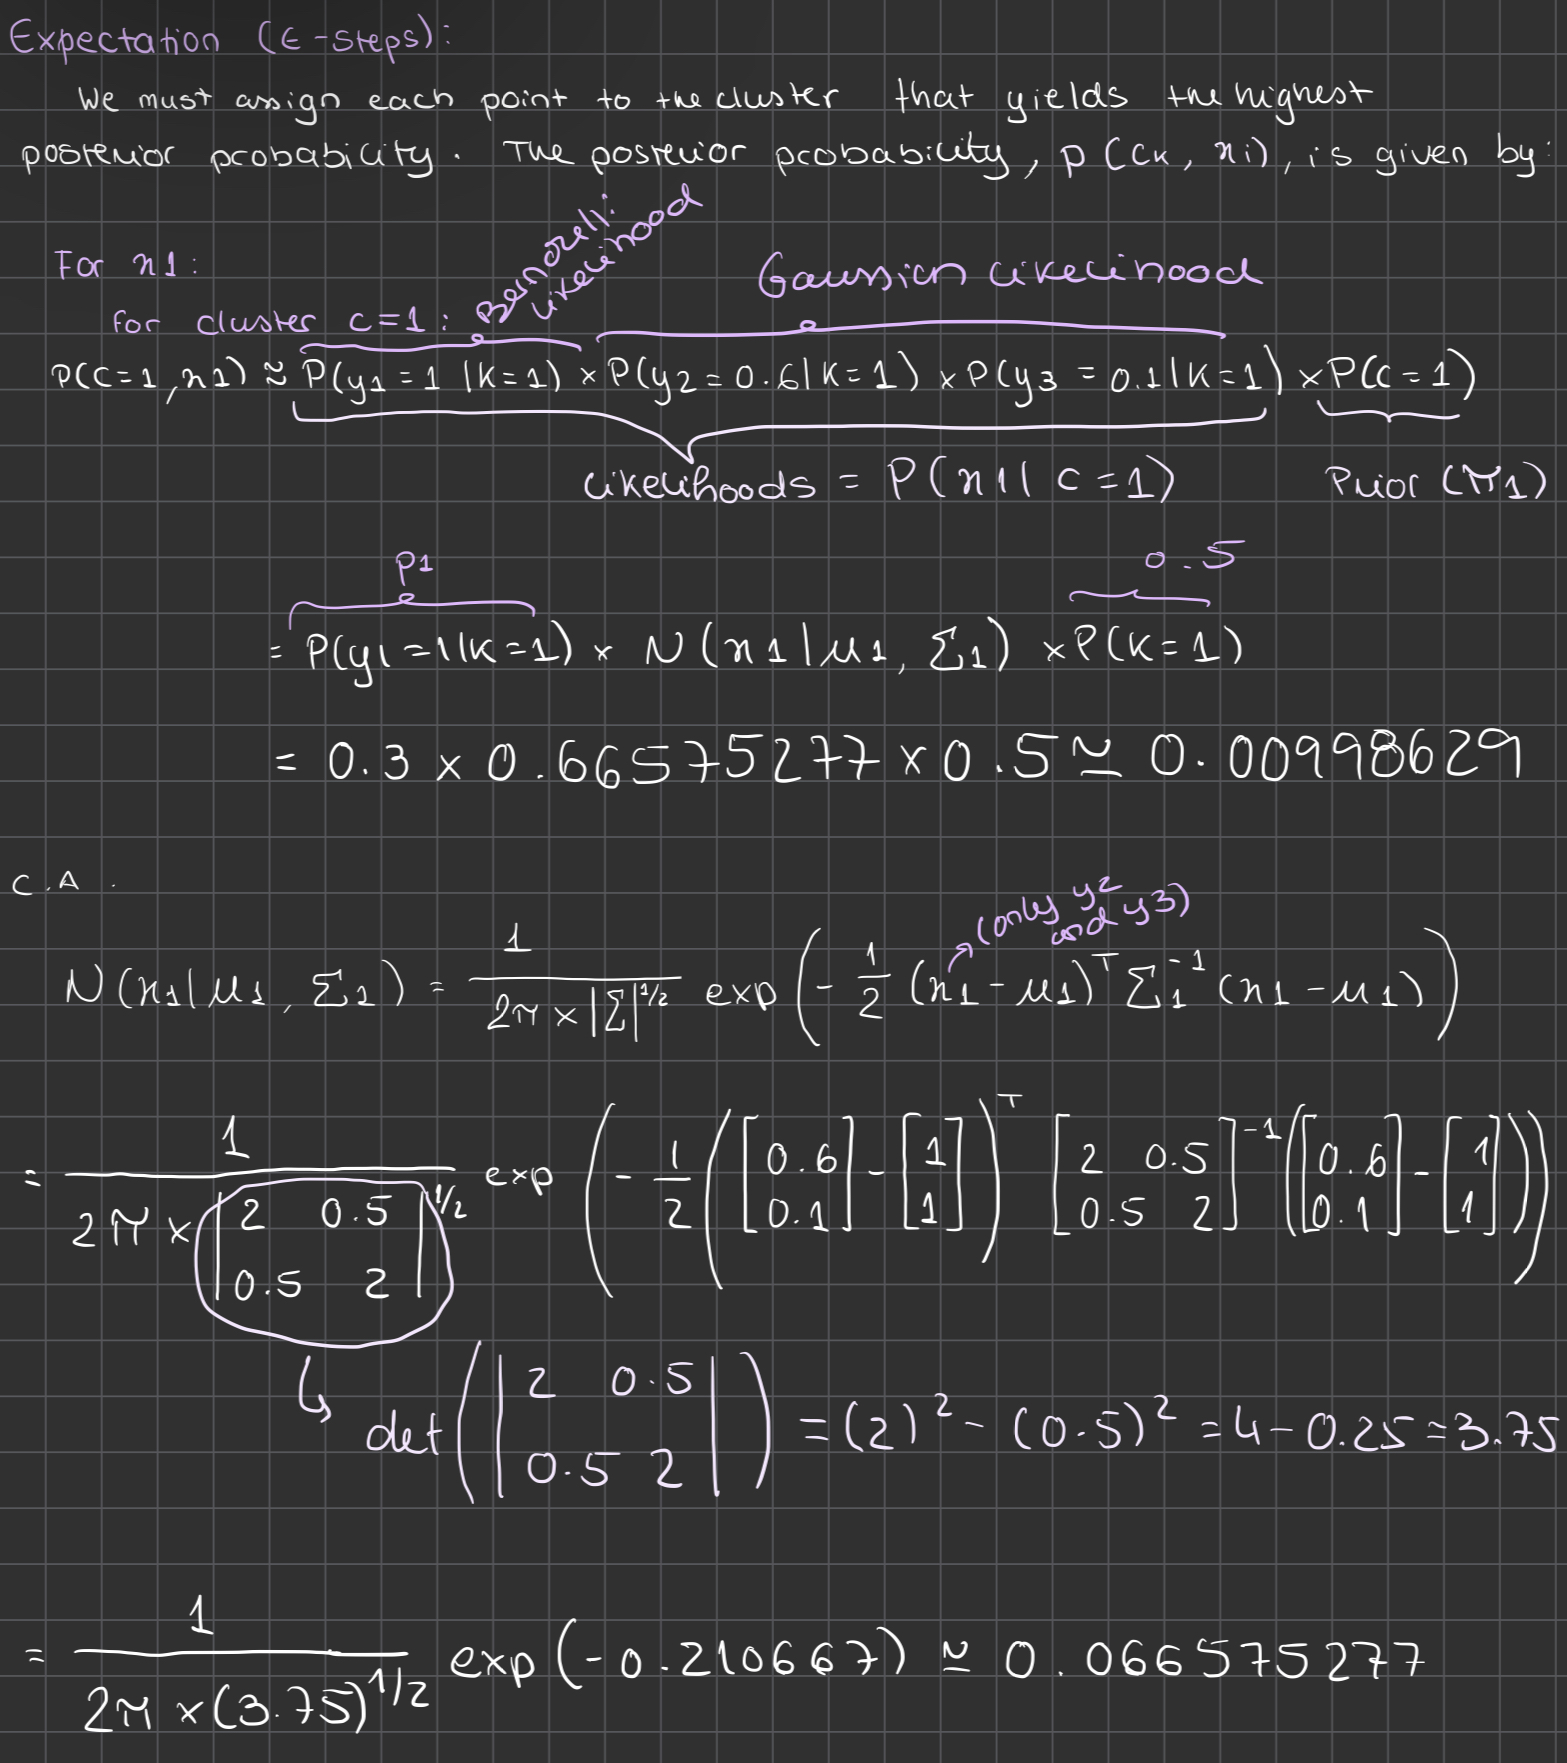 Expectation (E-steps):
We must assign each point to the cluster that yields the highest
posterior probability. The posterior probability, p(ck, xi), is given by:
For x1:
Bernoulli likelihood
Gaussian likelihood
for cluster c=1:
P(C=1, x1) ≈ P(y1 = 1 | K=1) × P(y2 = 0.6 | K=1) × P(y3 = 0.1 | K=1) × P(C=1)
likelihoods = P(x1 | C=1) Prior (π1)
p1 0.5
= P(y1=1|K=1) × N(x1|μ1, Σ1) × P(K=1)
= 0.3 × 0.66575277 × 0.5 ≃ 0.00998629
C.A.
(only y2 and y3)
N(x1|μ1, Σ1) = 1 / (2π × |Σ|^1/2) exp(-1/2 (x1 - μ1)^T Σ1^-1 (x1 - μ1))
= 1 / (2π × |2 0.5 0.5 2|^1/2) exp(-1/2 ([0.6 0.1] - [1 1])^T [2 0.5 0.5 2]^-1 ([0.6 0.1] - [1 1]))
↳ det(|2 0.5 0.5 2|) = (2)^2 - (0.5)^2 = 4 - 0.25 = 3.75
= 1 / (2π × (3.75)^1/2) exp(-0.210667) ≃ 0.066575277